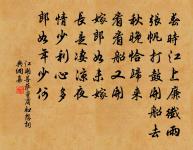 春時江上廉纖雨
張帆打鼓開船去
秋晚恰歸來
看看船又開
嫁郎如未嫁
長是淒涼夜
情少利心多
郎如年少何
江開菩薩蠻商婦怨詞